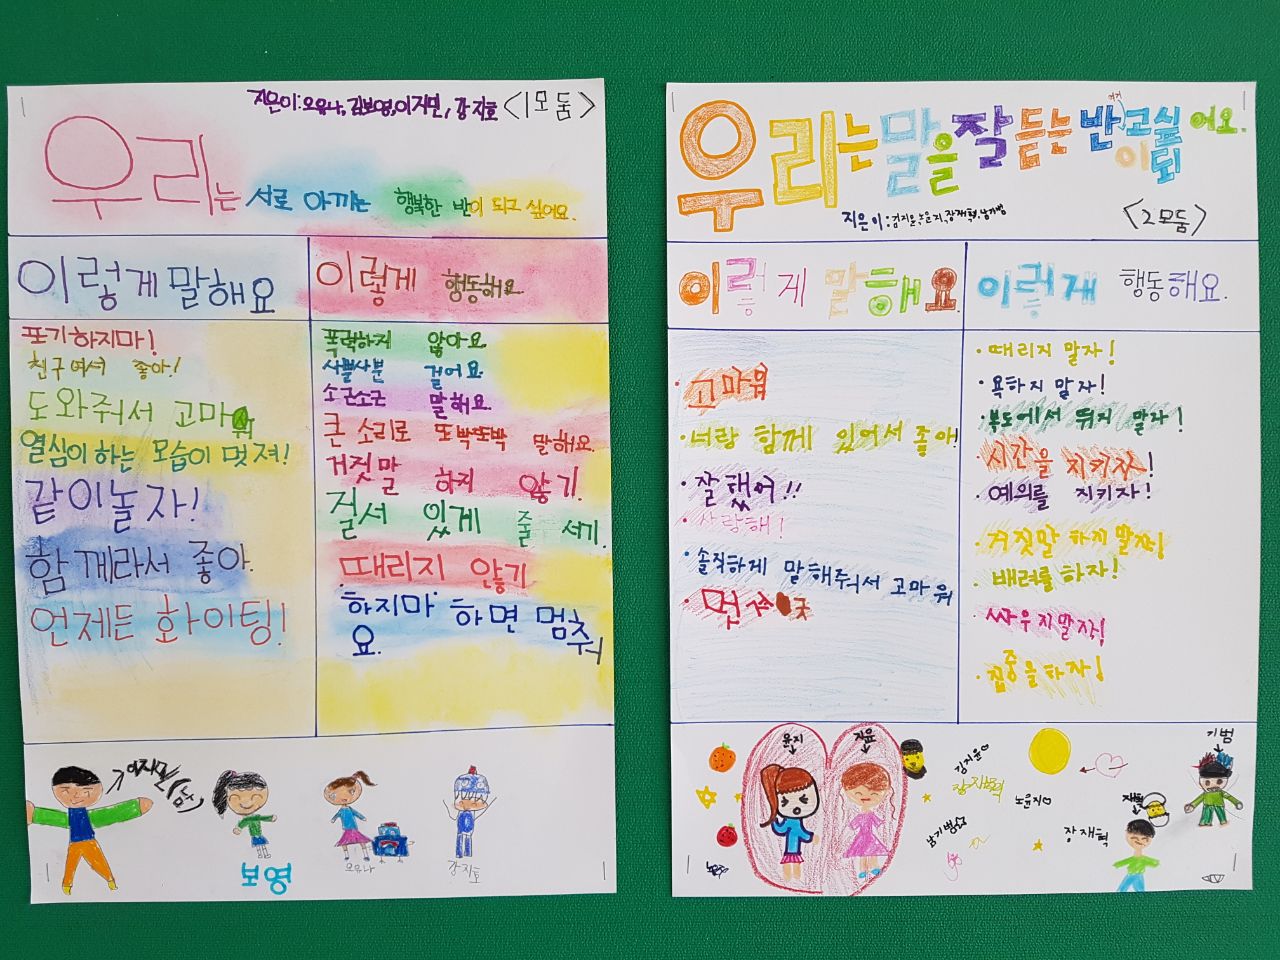 지은이:오유나, 김보영, 이지민, 강지호 <1모둠>
우리는 서로 아끼는 행복한 반이 되고 싶어요.
이렇게 말해요
포기하지마!
친구여서 좋아!
도와줘서 고마워
열심이 하는 모습이 멋져!
같이놀자!
함께라서 좋아.
언제든 화이팅!
이렇게 행동해요
폭력하지 않아요
사뿐사뿐 걸어요
소근소근 말해요
큰 소리로 또박또박 말해요.
거짓말 하지 않기.
질서 있게 줄 서기.
때리지 안기
하지마 하면 멈춰
요.
(남)
보영
오유나
강지호
우리는 말을 잘 듣는 반이 되고싶어요.
지은이:김지윤, 노윤지, 장재혁, 남기범
<2모둠>
이렇게 말해요.
고마워
너랑 함께 있어서 좋아!
잘했어!!
사랑해!
솔직하게 말해줘서 고마워
이렇게 행동해요.
때리지 말자!
욕하지 말자!
복도에서 뛰지 말자!
시간을 지키자!
예의를 지키자!
거짓말 하지말자!
배려를 하자!
싸우지말자!
집중을하자!
윤지
지윤
김지윤
노윤지
남기범
장재혁
기범